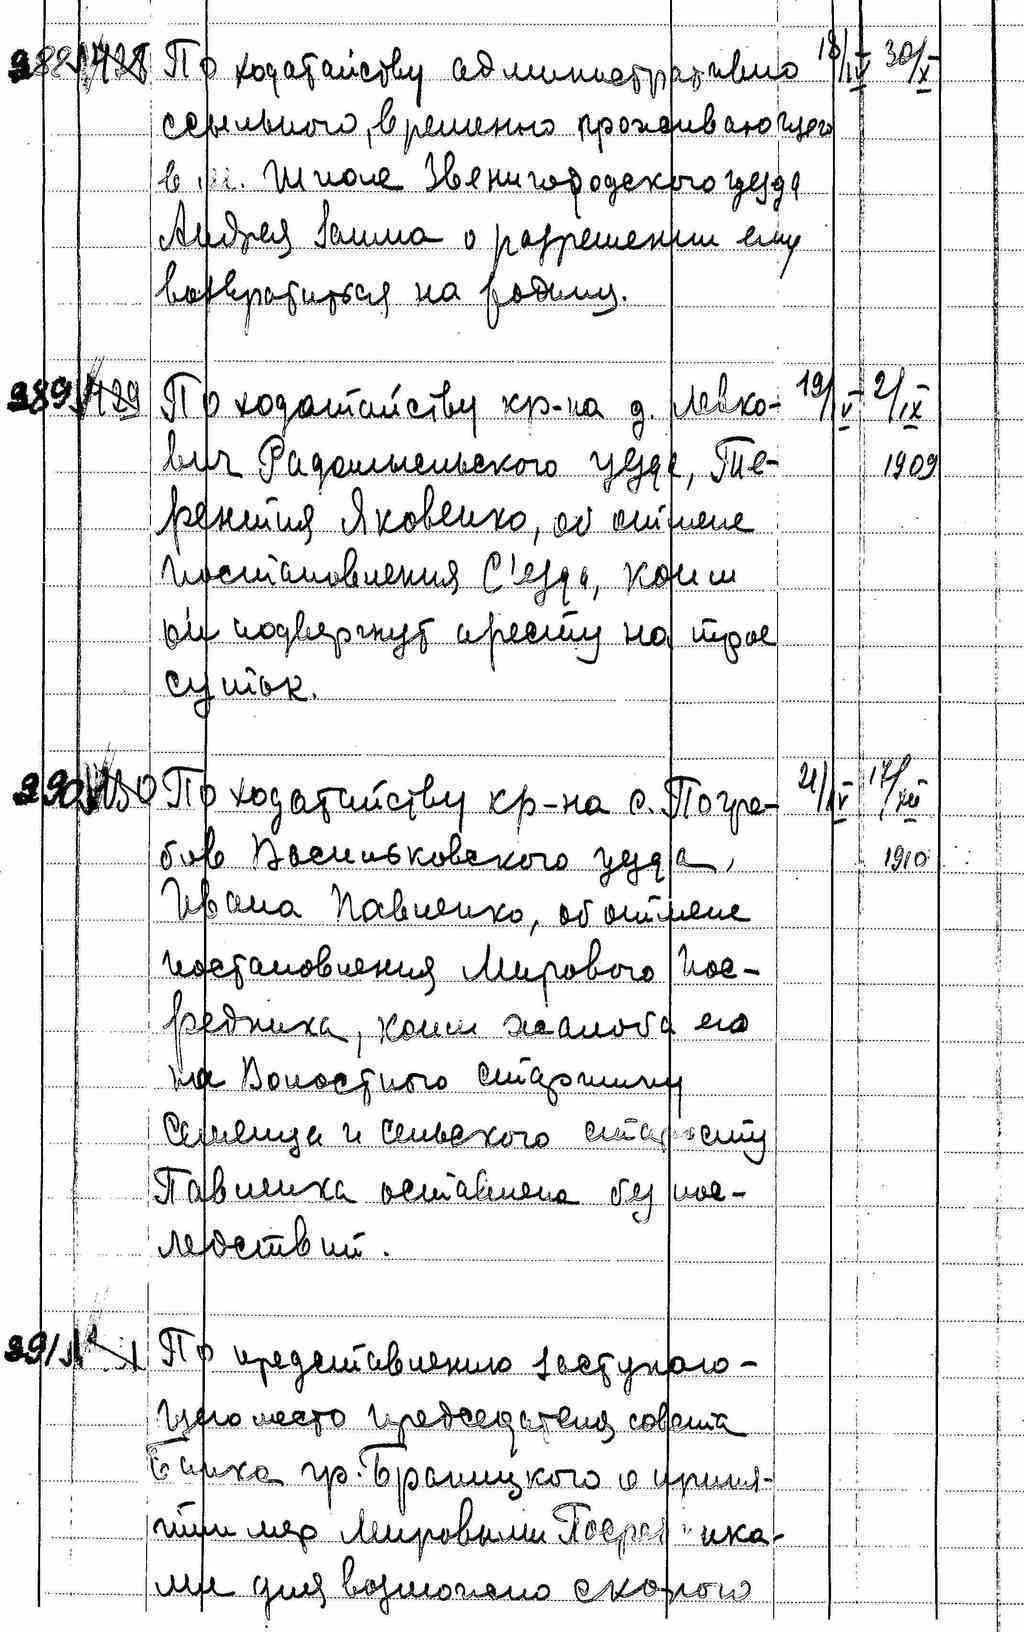 288 428 По ходатайству административно 18/IV 30/X
ссыльного, временно проживающего
в м. Шполе Звенигородского уезда
Андрея Заима о разрешении ему
возвратиться на родину.
289 429 По ходатайству кр-на д. Левко- 19/IV 2/IX
вич Радомысльского уезда, Те- 1909
рентия Яковенко, об отмене
постановления С'езда, коим
он подвергнут аресту на трое
суток.
290 430 По ходатайству кр-на с. Погре- 21/IV 17/XII
бов Васильковского уезда, 1910
Ивана Павленко, об отмене
постановления Мирового Пос-
редника, коим жалоба его
на Волостного старшину
Семенца и сельского старосту
Павленка оставлена без пос-
ледствий.
291 По представлению заступаю-
щего место председателя совета
Банка гр. Браницкого о приня-
тии мер Мировыми Посредника-
ми для возможно скорого